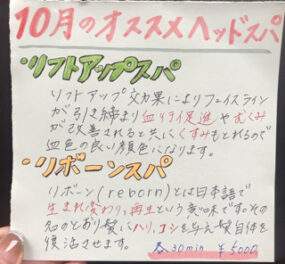 10月のオススメヘッドスパ
・リフトアップスパ
リフトアップ効果によりフェイスライン
が引き締まり血行促進やむくみ
が改善されると共にくすみもとれるので
血色の良い顔色になります。
・リボーンスパ
リボーン(reborn)とは日本語で
生まれ変わり、再生という意味です。その
名のとおり髪にハリ、コシを与え髪自体を
復活させます。
各30min ¥5000